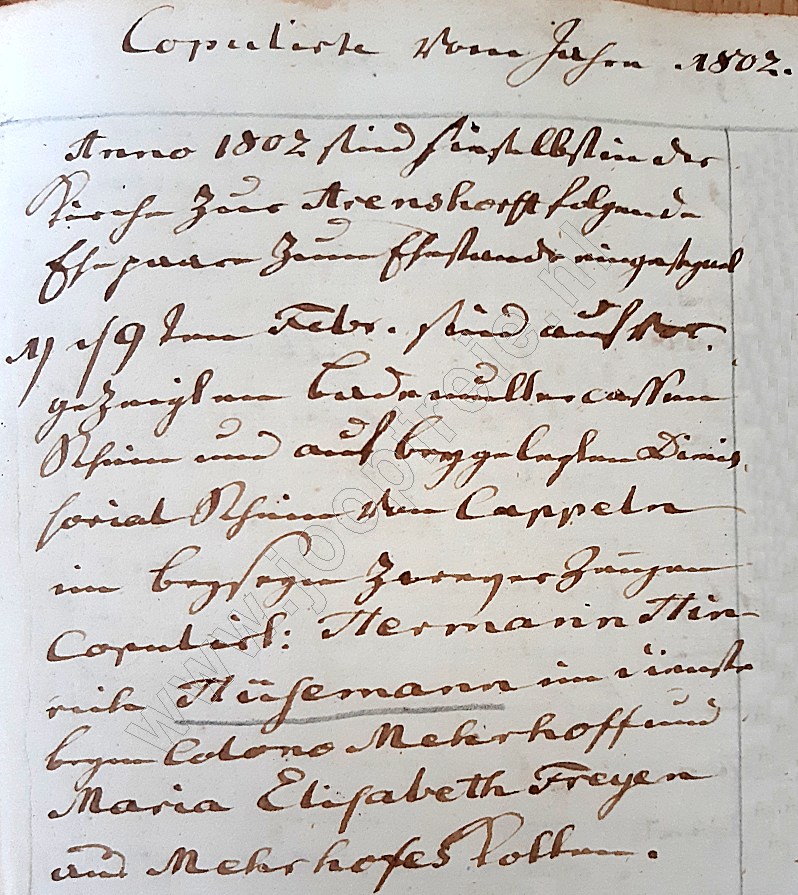 Copulirte vom Jahre 1802.
Anno 1802 sind hieselbst in der
Kirche zur Arenshorst folgende
Ehepaare zum Ehestande eingesegnet
1) d 19ten Febr. sind auf vor-
gezeigten Schein und auf beygelegten Dimis-
sorial Schein von Cappeln
im beyseyn zweyer Zeugen
Copulirt: Hermann Hin-
rich Hüsemann im Dienste
beym Colono Mehrhoff und
Maria Elisabeth Freyen
aus Mehrhofes Kotten.
www.joopfreie.nl